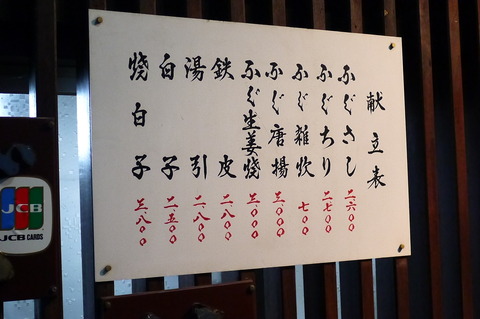 献立表
ふぐさし 二、六〇〇
ふぐちり 二、七〇〇
ふぐ雑炊 七〇〇
ふぐ唐揚 三、〇〇〇
ふぐ生姜焼 三、〇〇〇
鉄皮 二、八〇〇
湯引 二、八〇〇
白子 二、五〇〇
焼白子 三、八〇〇
JCB
JCB CARDS